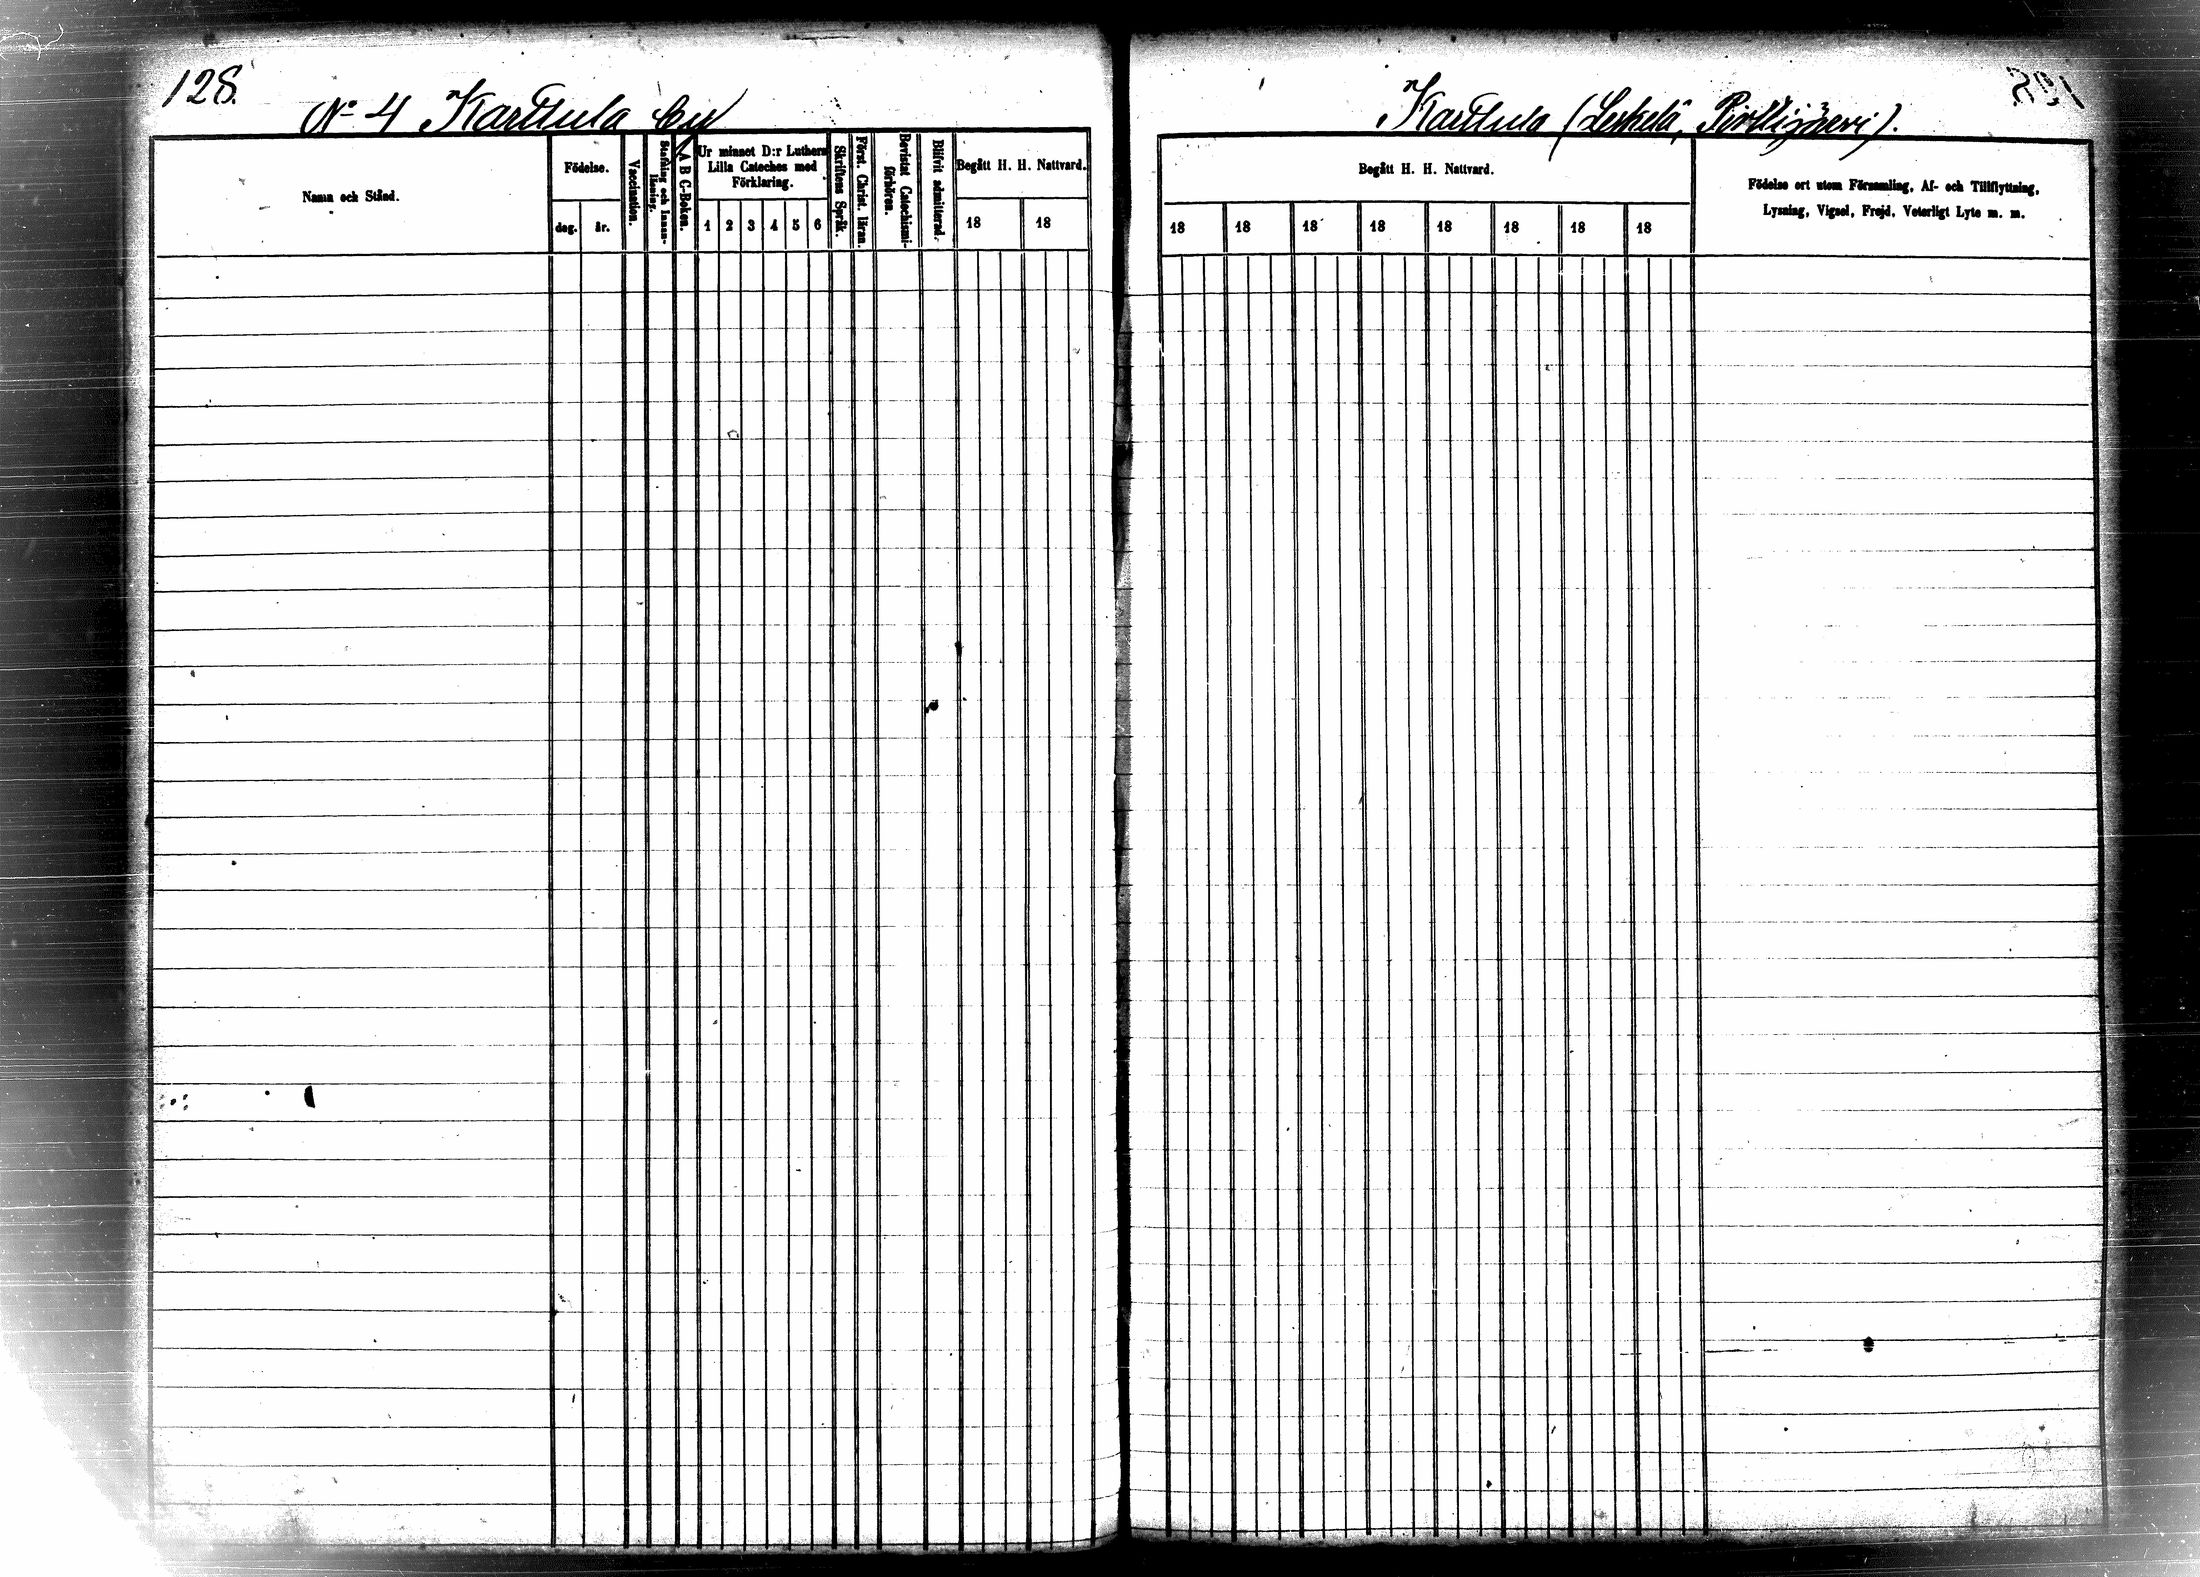 128.
No 4 Karttula by
Namn och Stånd.
Födelse.
dag. år.
Vaccination.
Stafning och Innan-
läsning.
A B C-Boken.
Ur minnet D:r Luthers
Lilla Cateches med
Förklaring.
1 2 3 4 5 6
Skriftens Språk.
Först. Christ. läran.
Bevistat Catechismi-
förhören.
Blifvit admitterad.
Begått H. H. Nattvard.
18 18
Karttula (Leskelä, Pirttijärvi).
Begått H. H. Nattvard.
18 18 18 18 18 18 18 18
Födelse ort utom Församling, Af- och Tillflyttning,
Lysning, Vigsel, Frejd, Veterligt Lyte m. m.